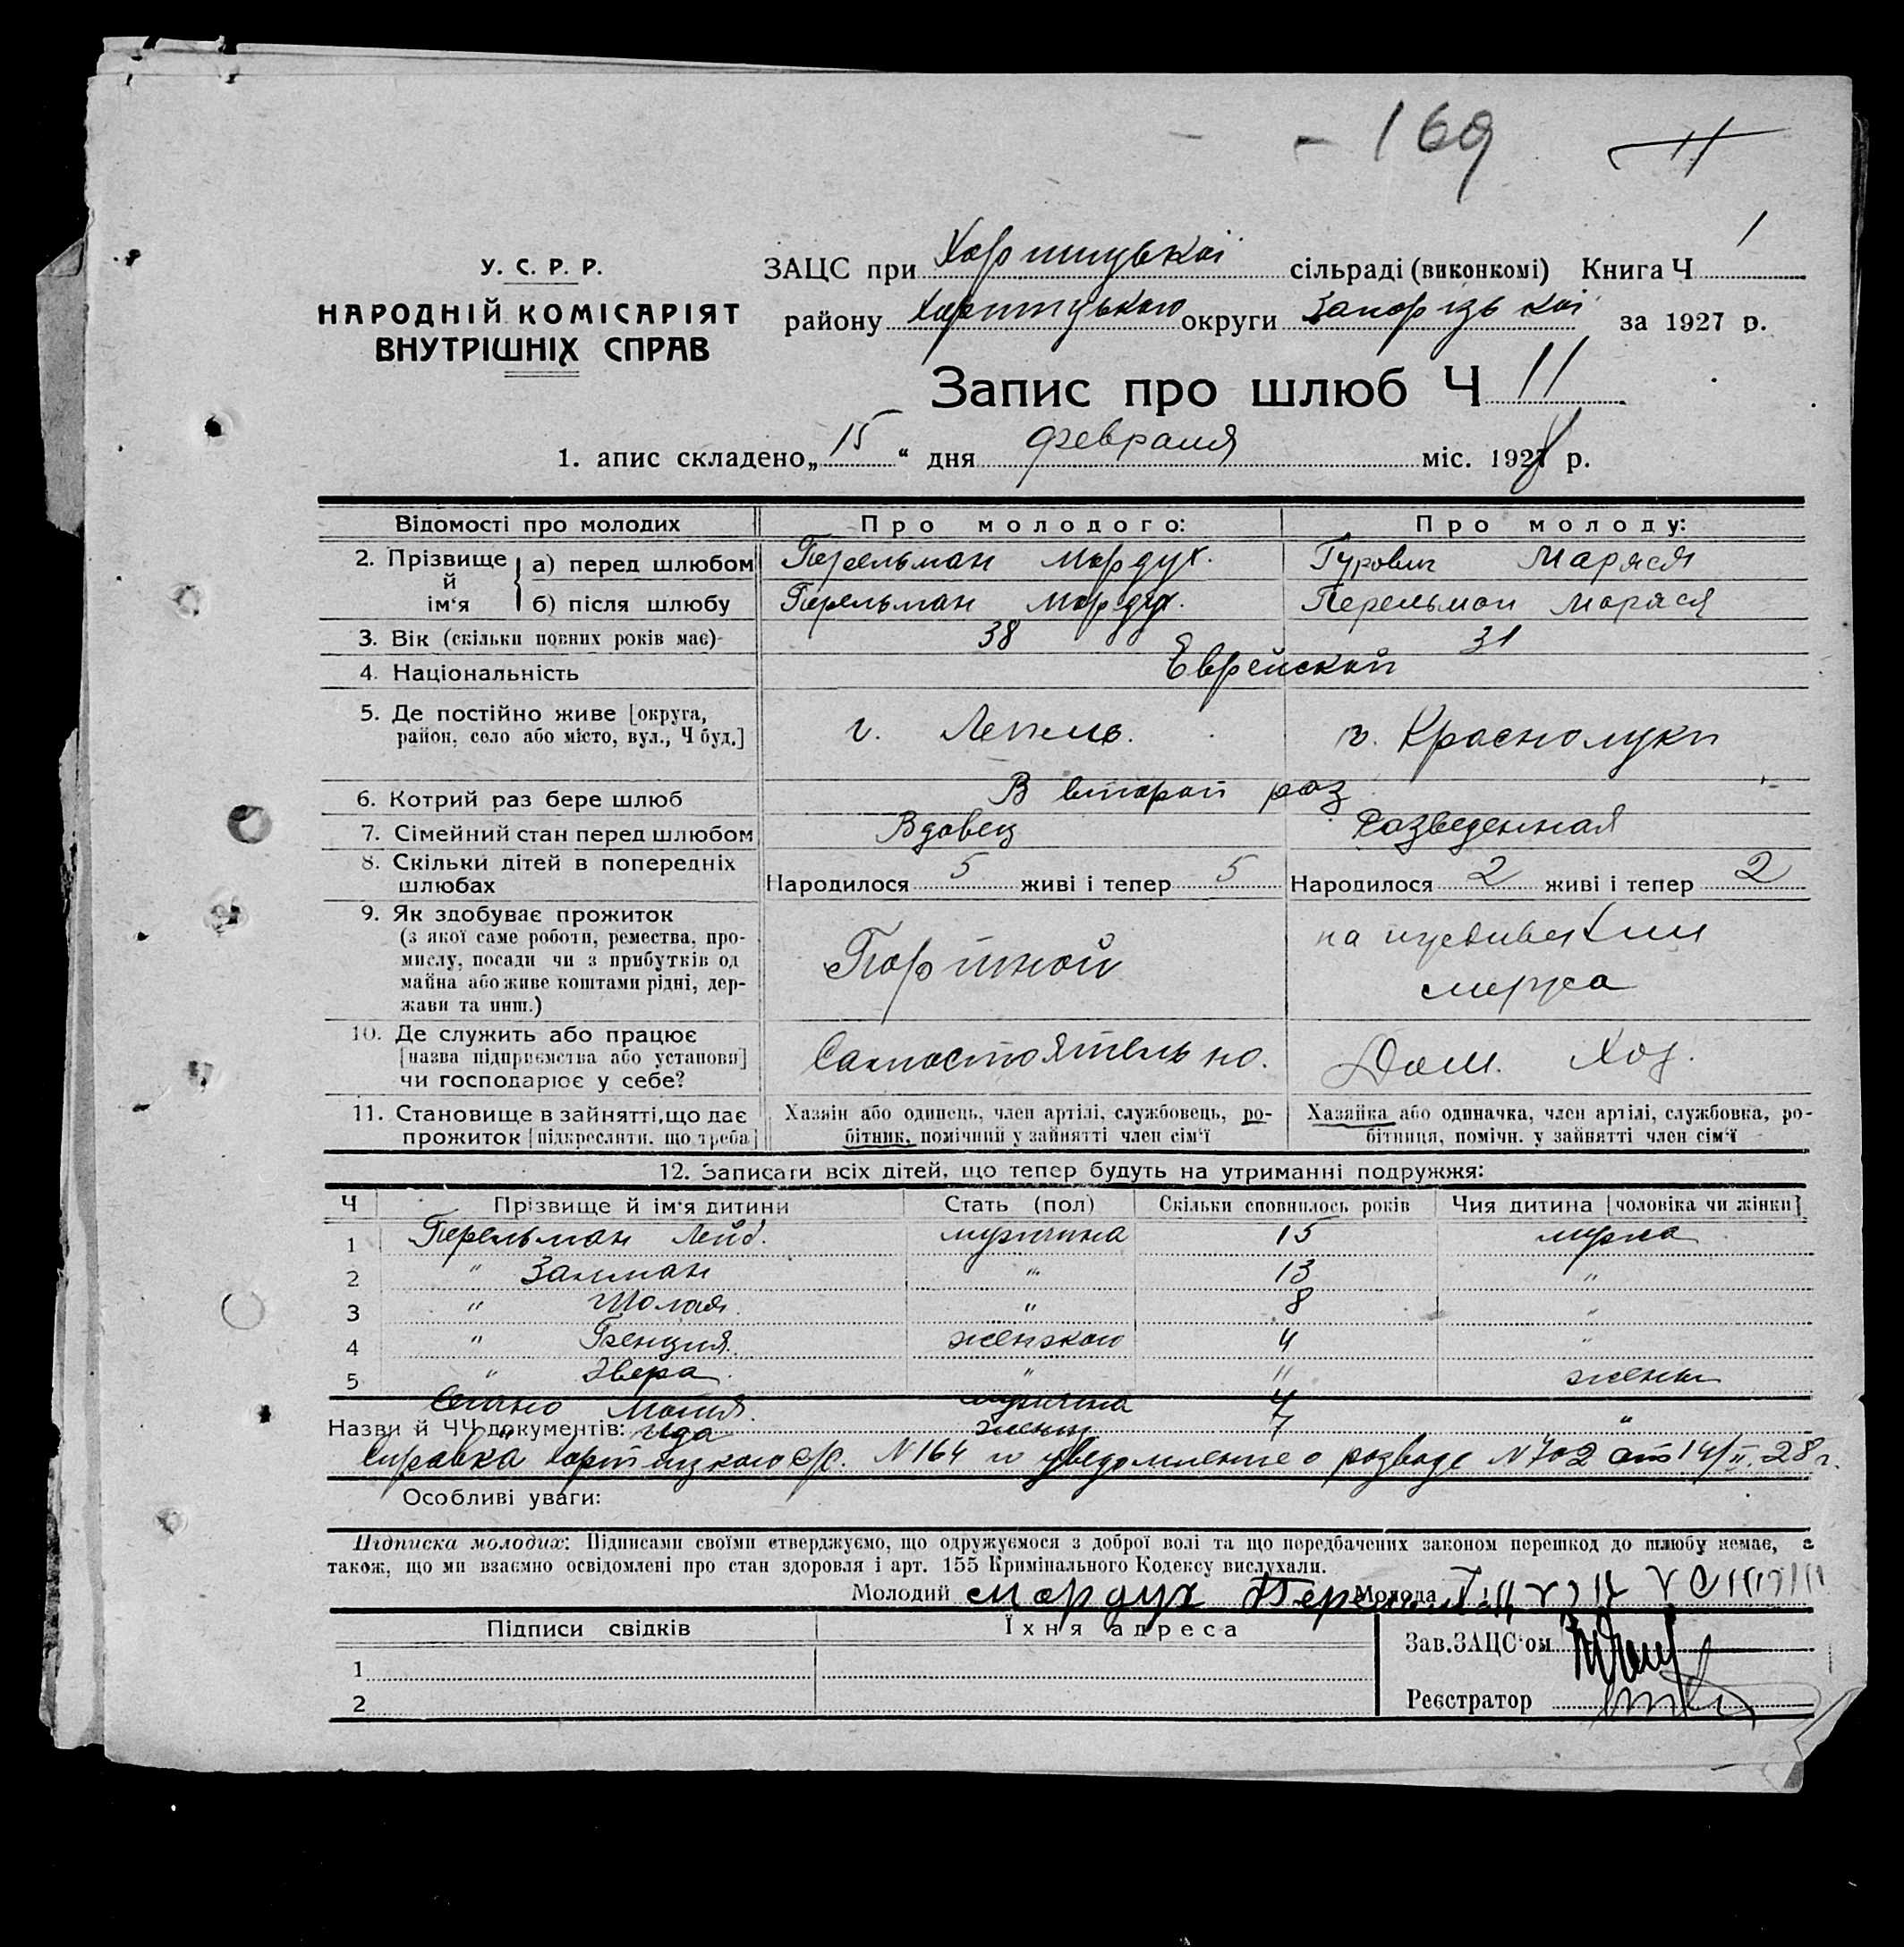 - 169 11
У. С. Р. Р.
НАРОДНІЙ КОМІСАРІЯТ
ВНУТРІШНІХ СПРАВ
ЗАЦС при Хортицькоі сільраді (виконкомі) Книга Ч 1
району Хортицького округи Запорізькоі за 1927 р.
Запис про шлюб Ч 11
1. апис складено „15“ дня февраля міс. 1928 р.
Відомості про молодих Про молодого: Про молоду:
2. Прізвище й ім'я а) перед шлюбом Перельман Мордух. Гурович Маряся
б) після шлюбу Перельман Мордух. Перельман Маряся
3. Вік (скільки повних років має) 38 31
4. Національність Еврейской
5. Де постійно живе [округа, район, село або місто, вул., Ч буд.] г. Лепель. г. Краснолуки
6. Котрий раз бере шлюб В второй раз
7. Сімейний стан перед шлюбом Вдовец Разведенная
8. Скільки дітей в попередніх шлюбах Народилося 5 живі і тепер 5 Народилося 2 живі і тепер 2
9. Як здобуває прожиток
(з якої саме роботи, ремества, про-
мислу, посади чи з прибутків од
майна або живе коштами рідні, дер-
жави та инш.)
Портной
на иждивении
мужа
10. Де служить або працює
[назва підприємства або установи]
чи господарює у себе?
Самостоятельно. Дом. Хоз.
11. Становище в зайнятті, що дає
прожиток [підкреслити, що треба]
Хазяїн або одинець, член артілі, службовець, ро-
бітник, помічний у зайнятті член сім'ї
Хазяйка або одиначка, член артілі, службовка, ро-
бітниця, помічн. у зайнятті член сім'ї
12. Записати всіх дітей, що тепер будуть на утриманні подружжя:
Ч Прізвище й ім'я дитини Стать (пол) Скільки сповнилось років Чия дитина [чоловіка чи жінки]
1 Перельман Лейб. мужчина 15 мужа
2 " Залман " 13 "
3 " " 8 "
4 " женского 4 "
5 " Двера " 11 жены
мужчина 4
Назви й ЧЧ документів: " Ида женщ 7 "
Справка Хортицкого с/с. N 164 и уведомление о разводе N 702 от 14/II-28 г.
Особливі уваги:
Підписка молодих: Підписами своїми стверджуємо, що одружуємося з доброї волі та що передбачених законом перешкод до шлюбу немає, а
також, що ми взаємно освідомлені про стан здоровля і арт. 155 Кримінального Кодексу вислухали.
Молодий Мордух Перельман Молода
Підписи свідків Їхня адреса Зав. ЗАЦС'ом
1
2 Реєстратор